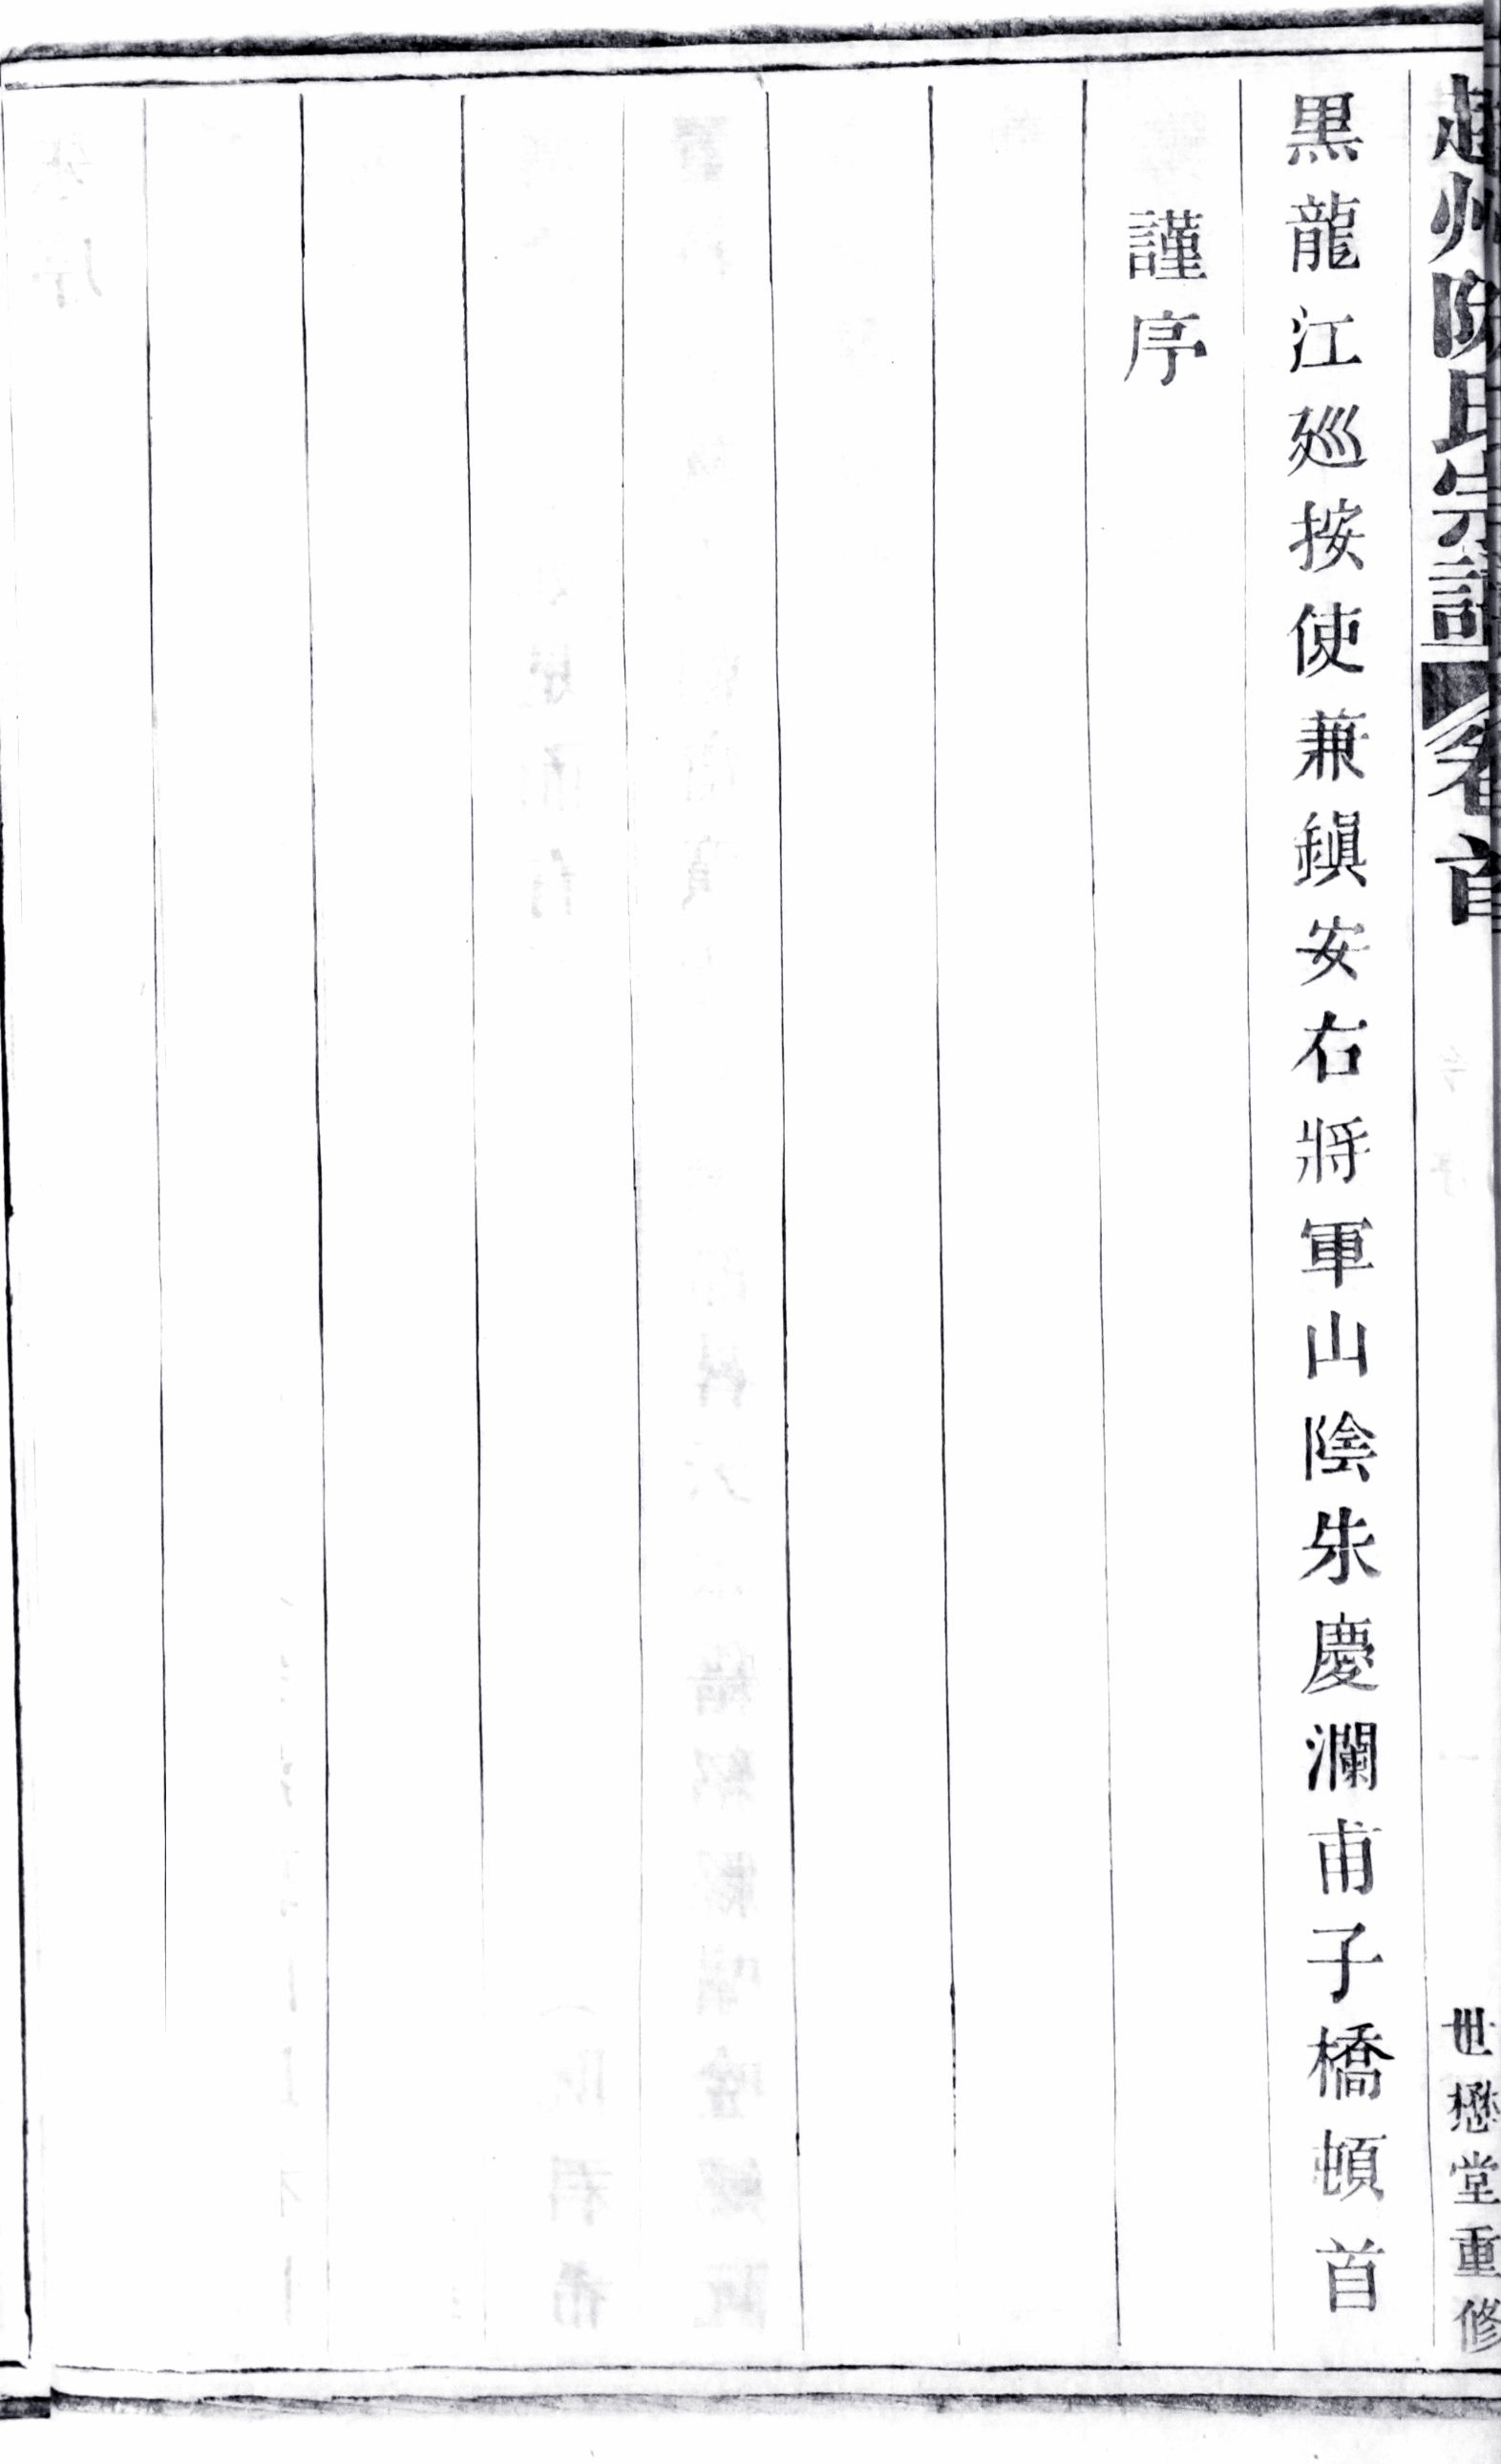 越州阮氏宗譜 卷首 世懋堂重修
黒龍江廵按使兼鎭安右將軍山陰朱慶瀾甫子橋頓首
謹序